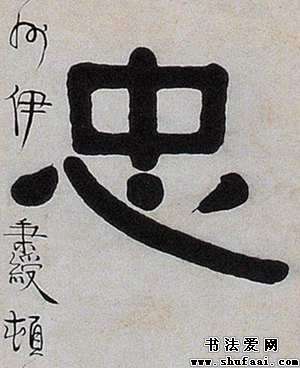 忠
州伊秉綬頓
书法爱网
www.shufaai.com